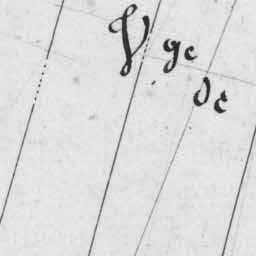 V ge
de